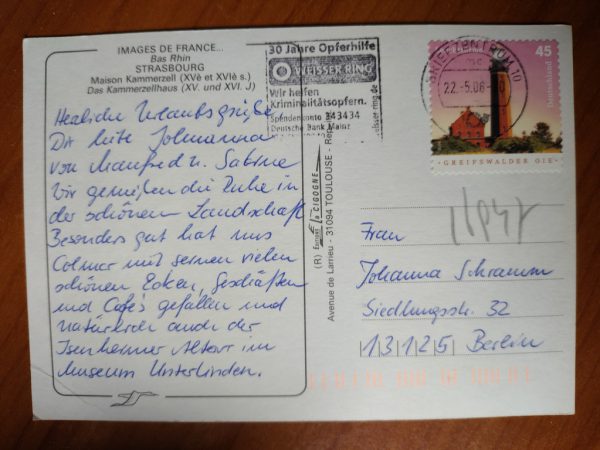 IMAGES DE FRANCE...
Bas Rhin
STRASBOURG
Maison Kammerzell (XVè et XVIè s.)
Das Kammerzellhaus (XV. und XVI. J)
Herzliche Urlaubsgrüße
Dir liebe Johanna
von Manfred u. Sabine
Wir genießen die Ruhe in
der schönen Landschaft
Besonders gut hat uns
Colmar mit seinen vielen
schönen Ecken, Geschäften
und Cafe's gefallen und
natürlich auch der
Isenheimer Altar im
Museum Unterlinden.
30 Jahre Opferhilfe
WEISSER RING
Wir helfen
Kriminalitätsopfern.
Spendenkonto 343434
Deutsche Bank Mainz
weisser-ring.de
BRIEFZENTRUM 10
22.-5.06
45
Deutschland
GREIFSWALDER OIE
(R) Editions la CIGOGNE
Avenue de Larrieu - 31094 TOULOUSE
Frau
Johanna Schramm
Siedlungsstr. 32
13125 Berlin